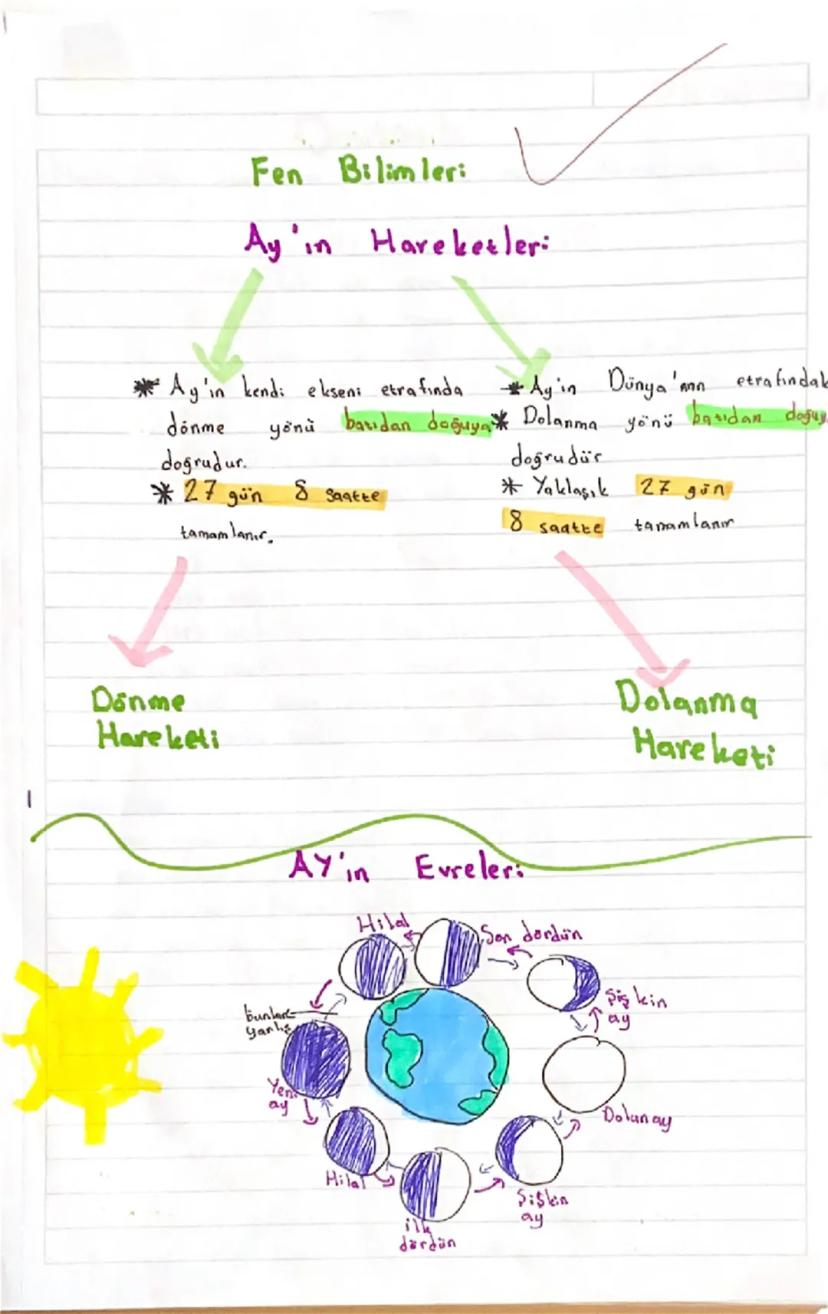 Fen Bilimleri
Ay'ın Hareketleri
* Ay'ın kendi ekseni etrafında
dönme yönü batıdan doğuya
doğrudur.
* 27 gün 8 saatte
tamamlanır.
* Ay'ın Dünya'nın etrafındak
* Dolanma yönü batıdan doğuy
doğrudür
* Yaklaşık 27 gün
8 saatte tamamlanır
Dönme
Hareketi
Dolanma
Hareketi
AY'ın Evreleri
Hilal
Son dördün
Şişkin
ay
bunlar
yanlış
Yeni
ay
Dolunay
Hilal
ilk
dördün
Şişkin
ay